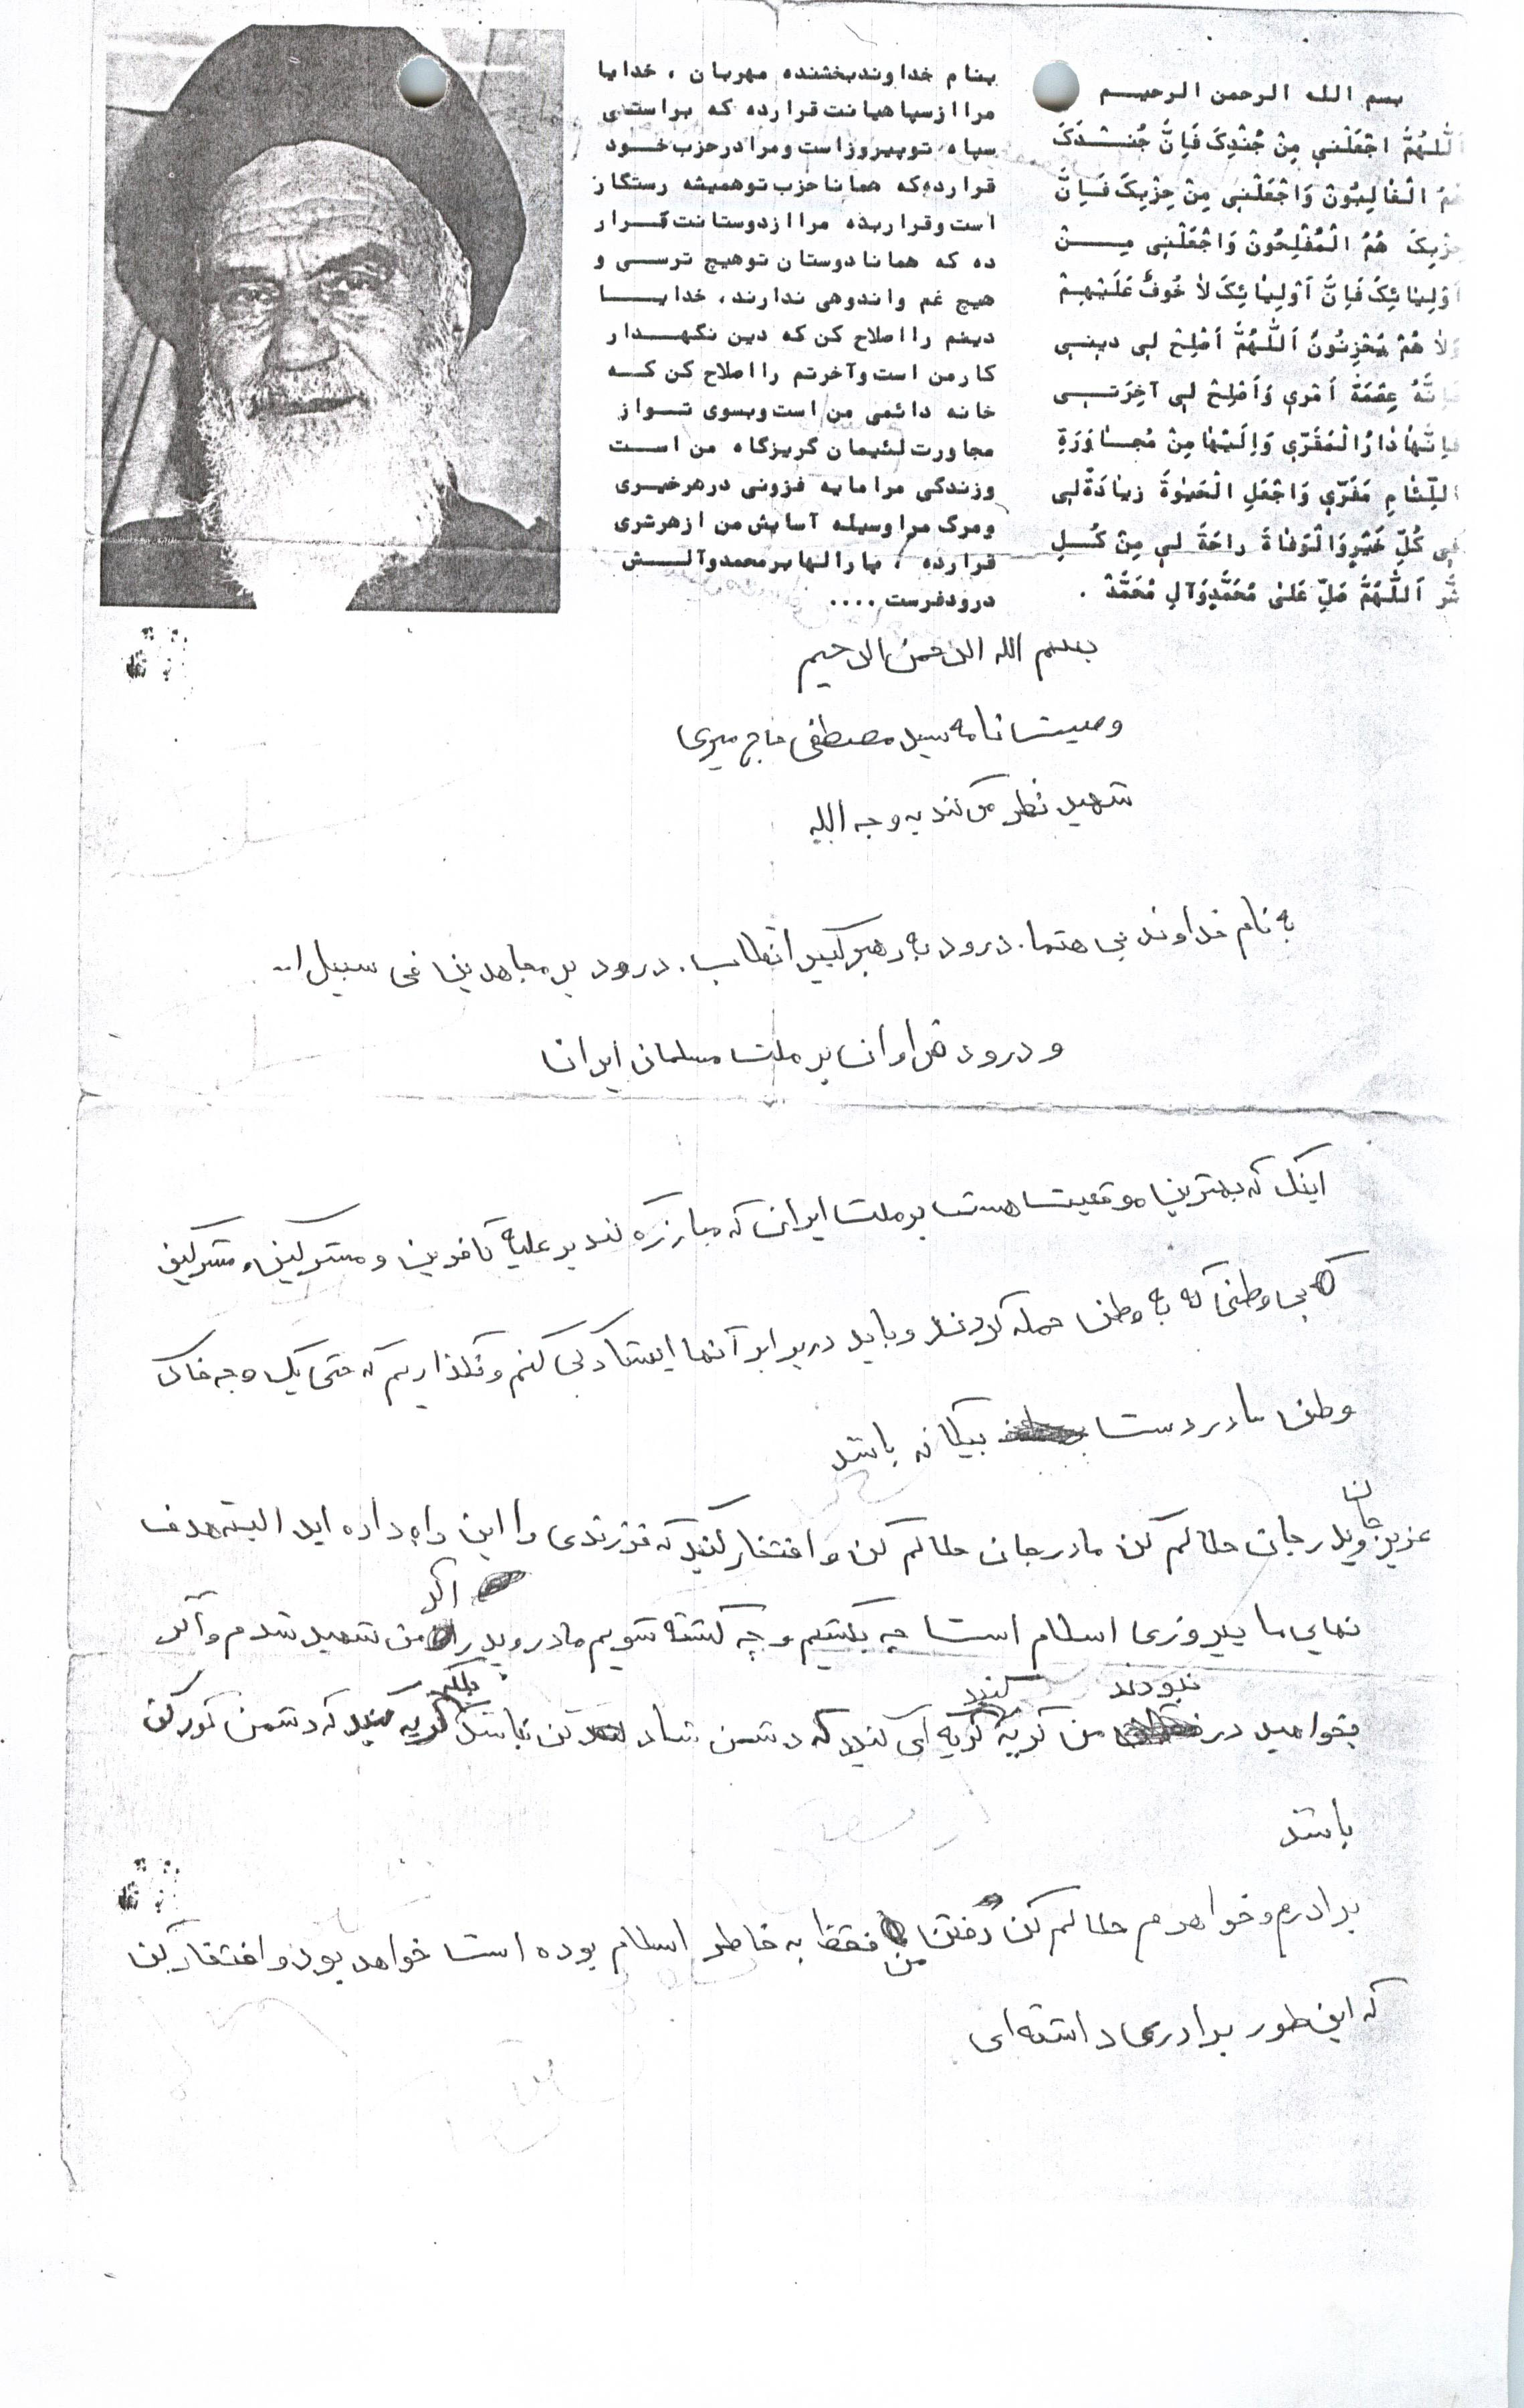 بسم الله الرحمن الرحیم
اَللّهُمَّ اجْعَلْنی مِنْ جُنْدِکَ فَاِنَّ جُنْدَکَ
هُمُ الْغالِبُونَ وَاجْعَلْنی مِنْ حِزْبِکَ فَاِنَّ
حِزْبَکَ هُمُ الْمُفْلِحُونَ وَاجْعَلْنی مِنْ
اَوْلِیائِکَ فَاِنَّ اَوْلِیائَکَ لاٰ خَوْفٌ عَلَیْهِمْ
وَلاٰ هُمْ یَحْزَنُونَ اَللّهُمَّ اَصْلِحْ لی دینی
فَاِنَّهُ عِصْمَةُ اَمْری وَاَصْلِحْ لی آخِرَتی
فَاِنَّها دارُ الْمَقَرّی وَاِلَیْها مِنْ مُجاوَرَةِ
اللِّئامِ مَفَرّی وَاجْعَلِ الْحَیوةَ زیادَةً لی
فی کُلِّ خَیْرٍ وَالْوَفاةَ راحَةً لی مِنْ کُلِّ
شَّرٍ اَللّهُمَّ صَلِّ عَلی مُحَمَّدٍ وَآلِ مُحَمَّدْ .
بنام خداوند بخشنده مهربان ، خدایا
مرا از سپاهیانت قرار ده که براستی
سپاه توپیروز است و مرا در حزب خود
قرار ده که همانا حزب تو همیشه رستگار
است و قرار بده مرا از دوستانت قرار
ده که همانا دوستان تو هیچ ترسی و
هیچ غم و اندوهی ندارند ، خدایا
دینم را اصلاح کن که دین نگهدار
کار من است و آخرتم را اصلاح کن که
خانه دائمی من است و بسوی تو از
مجاورت لئیمان گریزگاه من است
و زندگی مرا مایه فزونی در هر خیری
و مرگ مرا وسیله آسایش من از هر شری
قرار ده ، بارالها بر محمد و آلش
درود فرست ....
بسم الله الرحمن الرحیم
وصیت نامه سید مصطفی حاج میری
شهید نظر می کند به وجه الله
به نام خداوند بی همتا. درود به رهبر کبیر انقلاب. درود بر مجاهدین فی سبیل ا..
و درود فراوان بر ملت مسلمان ایران
اینک که بهترین موقعیت هست بر ملت ایران که مبارزه کند بر علیه کافرین و مشرکین مشرکین
بی وطنی که به وطن حمله کردند و باید در برابر آنها ایستادگی کنم و نگذاریم که حتی یک وجه خاک
وطن ما در دست بیگانه باشد
عزیز جان و پدر جان حلالم کن مادر جان حلالم کن و افتخار کنید که فرزندی را این راه داده اید البته هدف
نهایی ما پیروزی اسلام است چه بکشیم و چه کشته شویم مادر و پدر اگر من شهید شدم و اگر
بخواهید در نبودند من گریه کنید گریه ای کنید که دشمن شاد کن نباشد بلکه گریه کنید که دشمن کور کن
باشد
برادرم و خواهرم حلالم کن رفتن من فقط به خاطر اسلام بوده است خواهد بود و افتخار کن
که این طور برادری داشته ای